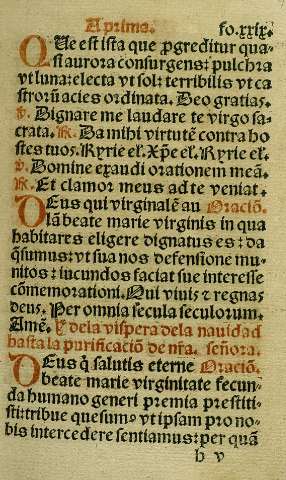 A prima. fo.xxix.
Que est ista que ꝓgreditur qua-
si aurora consurgens: pulchra
vt luna: electa vt sol: terribilis vt ca
stroꝝ acies ordinata. Deo gratias.
℣. Dignare me laudare te virgo sa-
crata. ℟. Da nihi virtutē contra ho
stes tuos. Kyrie el̄. Xp̄e el̄. Kyrie el̄.
℣. Domine exaudi orationem meā.
℟. Et clamor meus ad te veniat.
Deus qui virginalē au Oraciō.
lā beate marie virginis in qua
habitares eligere dignatus es: da
q̄sumus: vt sua nos defensione mu-
nitos: iucundos faciat sue interesse
cōmemorationi. Qui viuis ⁊ regnas
deus. Per omnia secula seculorum.
Amē. ¶ dela vispera dela nauidad
hasta la purificaciō de nr̄a. señora.
Deus q̄ salutis eterne Oraciō.
beate marie virginitate fecun-
da humano generi premia prestiti-
sti: tribue quesum⁹ vt ipsam pro no-
bis intercedere sentiamus: per quā
h v